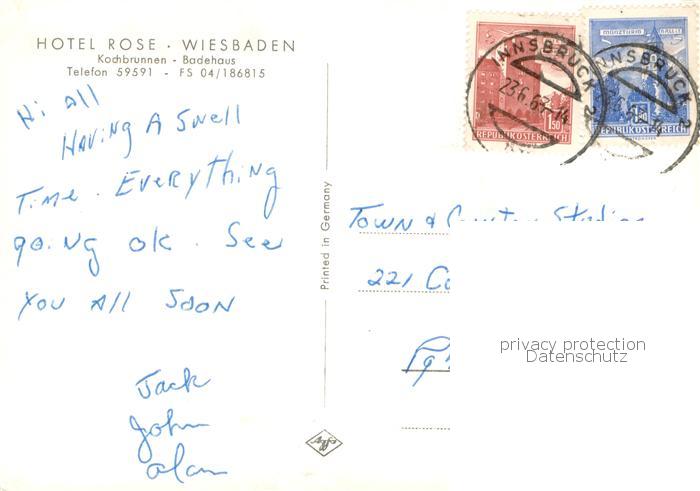 HOTEL ROSE · WIESBADEN
Kochbrunnen - Badehaus
Telefon 59591 - FS 04/186815
Hi all
Having A Swell
Time. Everything
going ok. See
you All Soon
Jack
John
Alan
Printed in Germany
INNSBRUCK 2
1.50
REPUBLIK ÖSTERREICH
MÜNZTURM HALL
INNSBRUCK 2
REPUBLIK ÖSTERREICH
Town & Country Studios
221
privacy protection
Datenschutz